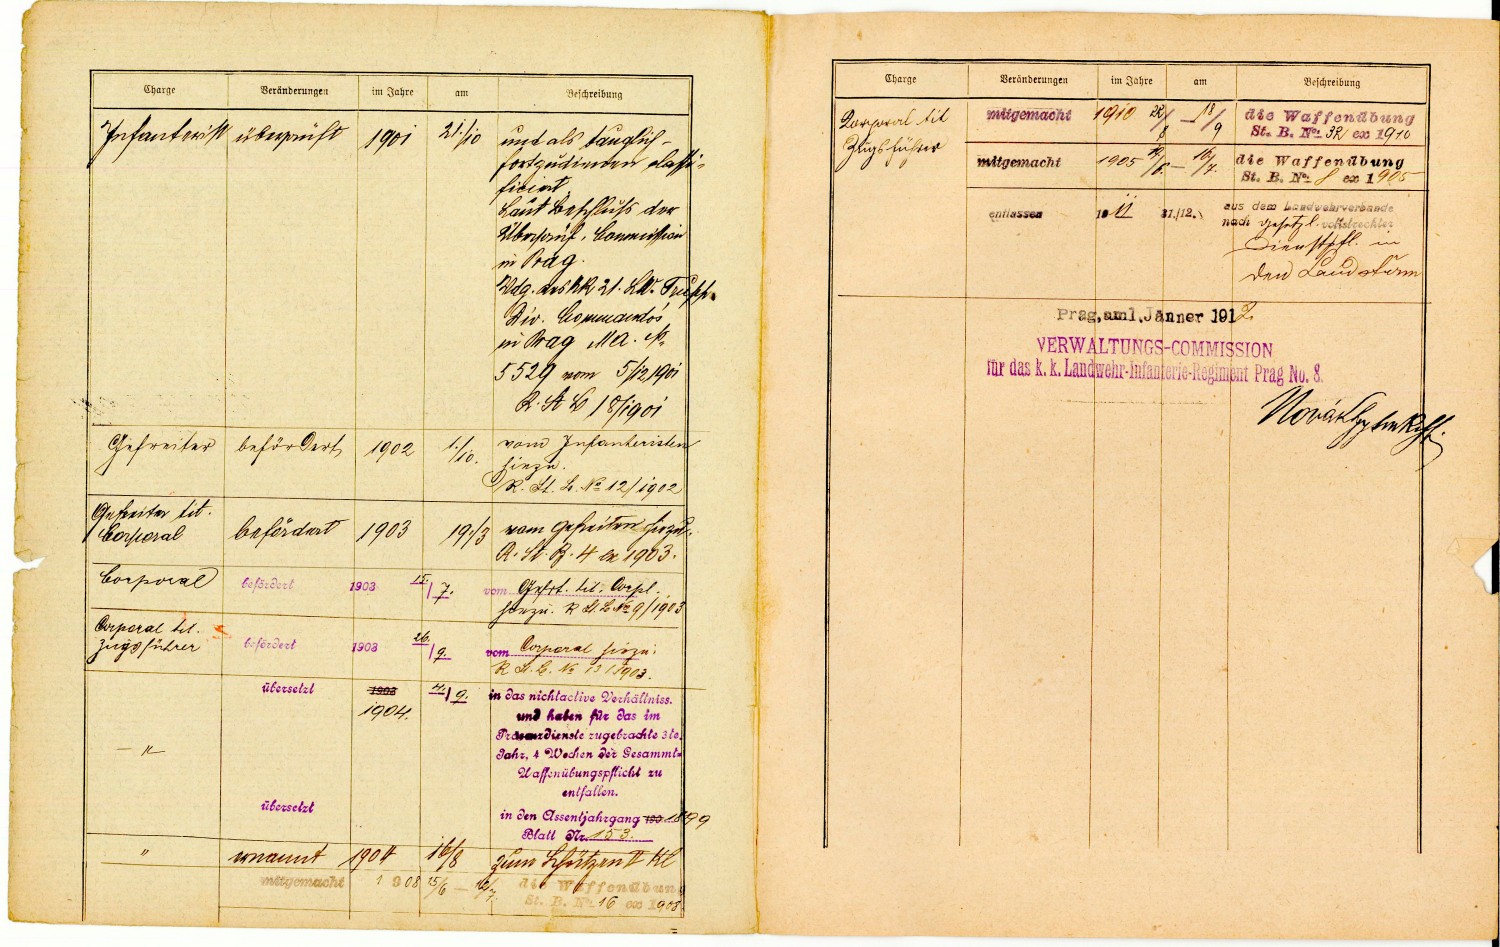 Charge Veränderungen im Jahre am Beschreibung
Infanterist überprüft 1901 21./10 und als tauglich-
classi-
ficiert
Laut Beschluß der
Überprüf. Commission
in Prag.
Trupp.
Div. Commandos
in Prag M.A. No
5529 vom 5/12 1901
18/1901
Gefreiter befördert 1902 1./10. vom Infanteristen
hiezu.
R. St. B. No 12/1902
Gefreiter tit.
Corporal befördert 1903 19./3 vom Gefreiten hiezu.
R. St. B. 4 ex 1903.
Corporal befördert 1903 15./7. vom Gefrt. tit. Corpl.
hiezu. R St. B No 9/1903
Corporal tit.
Zugsführer befördert 1903 26./9. vom Corporal hiezu.
R St. B. No 13/1903.
übersetzt 1903 1904. /9. in das nichtactive Verhältniss.
und haben für das im
Präsenzdienste zugebrachte 3te.
Jahr, 4 Wochen der Gesammt-
Waffenübungspflicht zu
entfallen.
übersetzt in den Assentjahrgang 1899
Blatt Nr. 153.
" ernannt 1904 16/8 zum Schützen II Kl
mitgemacht 1908 15/6 — /7. die Waffenübung
St. B. No. 16 ex 1908.
Charge Veränderungen im Jahre am Beschreibung
Corporal tit mitgemacht 1910 22/8 — 18/9 die Waffenübung
Zugsführer St. B. No. 32 ex 1910
mitgemacht 1905 /6. — 16/7. die Waffenübung
St. B. No. 8 ex 1905
entlassen 1911 31./12. aus dem Landwehrverbande
nach gesetzl. vollstreckter
Dienstpfl. in
den Landsturm
Prag, am 1. Jänner 1912.
VERWALTUNGS-COMMISSION
für das k. k. Landwehr-Infanterie-Regiment Prag No. 8.
Novák